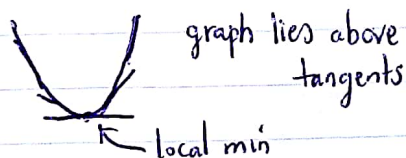 graph lies above
tangents
local min